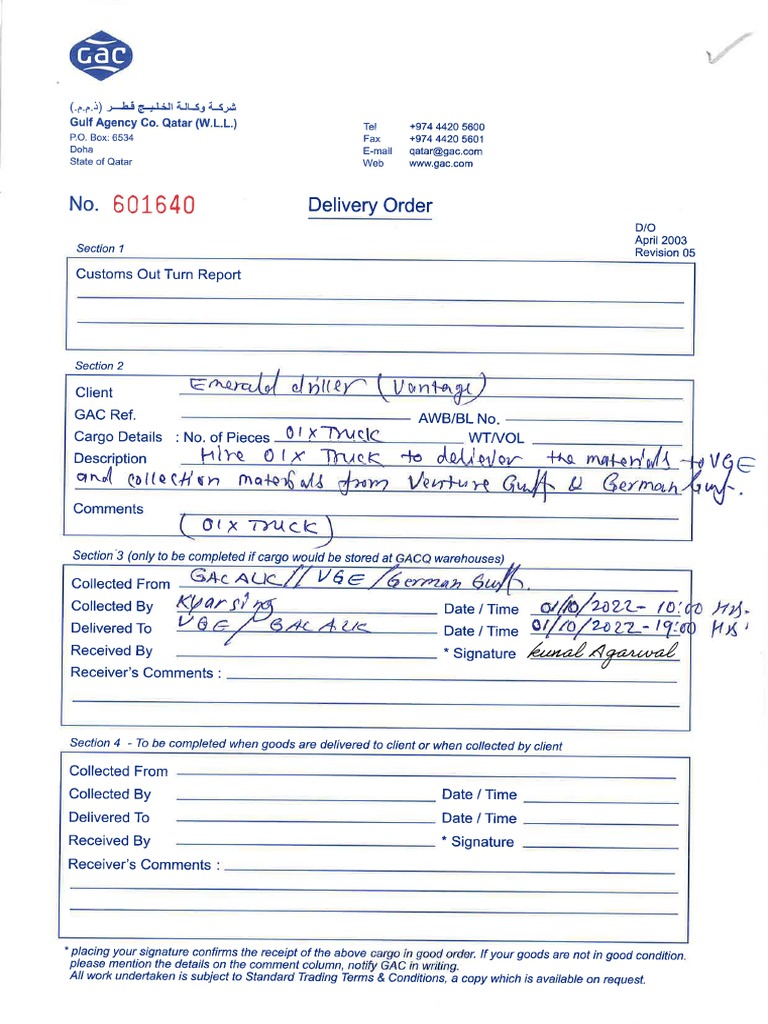 GAC
شركة وكالة الخليج قطر (ذ.م.م.)
Gulf Agency Co. Qatar (W.L.L.)
P.O. Box: 6534
Doha
State of Qatar
Tel +974 4420 5600
Fax +974 4420 5601
E-mail qatar@gac.com
Web www.gac.com
No. 601640
Delivery Order
D/O
April 2003
Revision 05
Section 1
Customs Out Turn Report
Section 2
Client Emerald driller (Vantage)
GAC Ref. AWB/BL No.
Cargo Details : No. of Pieces 01 X TRUCK WT/VOL
Description Hire 01 X TRUCK to deliever the materials to VGE
and collection materials from Venture Gulf & German Gulf.
Comments
(01 X TRUCK)
Section 3 (only to be completed if cargo would be stored at GACQ warehouses)
Collected From GAC ALK // VGE / German Gulf.
Collected By Kyarsing Date / Time 01/10/2022 - 10:00 HRS.
Delivered To VGE / GAC ALK Date / Time 01/10/2022 - 19:00 HRS.
Received By * Signature Kunal Agarwal
Receiver's Comments :
Section 4 - To be completed when goods are delivered to client or when collected by client
Collected From
Collected By Date / Time
Delivered To Date / Time
Received By * Signature
Receiver's Comments :
* placing your signature confirms the receipt of the above cargo in good order. If your goods are not in good condition.
please mention the details on the comment column, notify GAC in writing.
All work undertaken is subject to Standard Trading Terms & Conditions, a copy which is available on request.